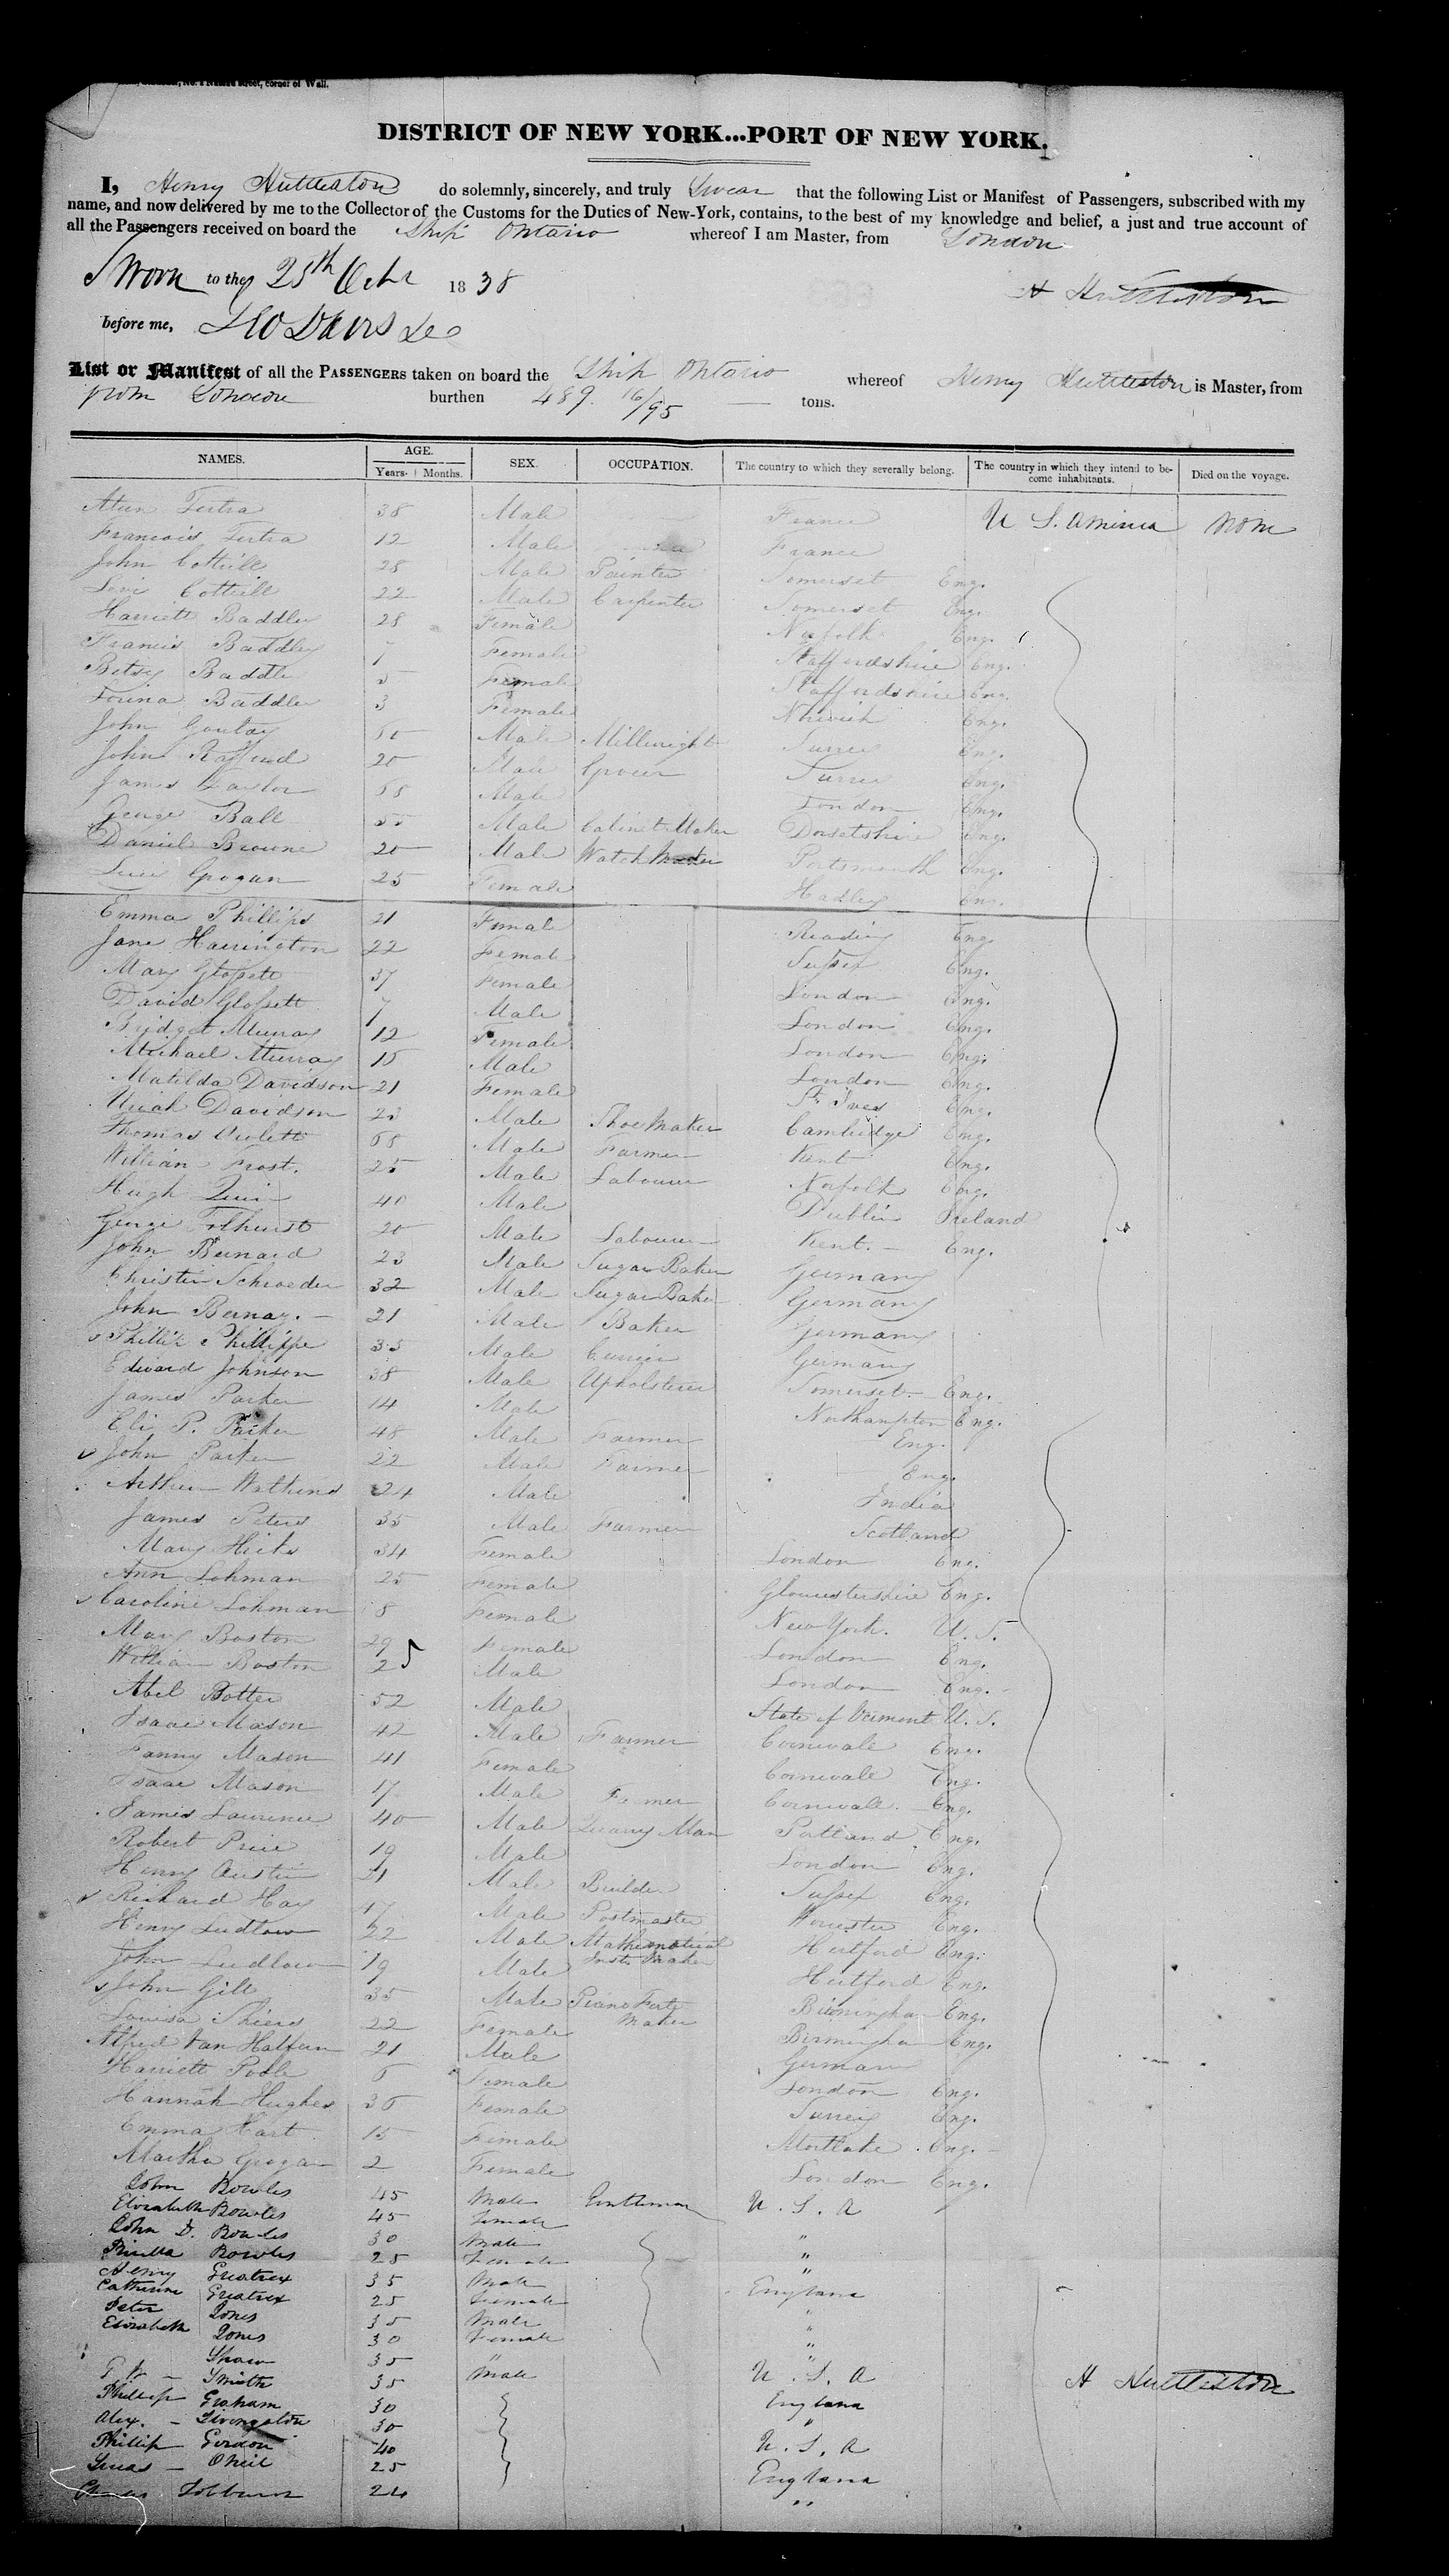 corner of Wall.
DISTRICT OF NEW YORK...PORT OF NEW YORK.
I, Henry Huttleston do solemnly, sincerely, and truly Swear that the following List or Manifest of Passengers, subscribed with my
name, and now delivered by me to the Collector of the Customs for the Duties of New-York, contains, to the best of my knowledge and belief, a just and true account of
all the Passengers received on board the Ship Ontario whereof I am Master, from London
Sworn to the 25th Octr 1838 H Huttleston
before me,
List or Manifest of all the PASSENGERS taken on board the Ship Ontario whereof Henry Huttleston is Master, from
from London burthen 489. 16/95 tons.
NAMES. AGE. SEX. OCCUPATION. The country to which they severally belong. The country in which they intend to be- Died on the voyage.
Years. Months. come inhabitants.
38 Male France U S. America None
Francois 12 Male France
John Cottrill 28 Male Painter Somerset Eng.
Levi Cottrill 22 Male Carpenter Somerset Eng.
Harriett Baddley 28 Female Norfolk Eng.
Francis Baddley 7 Female Staffordshire Eng.
Betsy Baddle 5 Female Staffordshire Eng.
Baddle 3 Female Eng.
John Male Millwright Surrey Eng.
John 20 Male Grocer Surrey Eng.
James Taylor 68 Male London Eng.
George Ball Male Cabinet Maker Dorsetshire Eng.
Daniel Browne 20 Male Watch Maker Portsmouth Eng.
Grogan 25 Female Hadley Eng.
Emma Phillips 21 Female Reading Eng.
Jane Harrington 22 Female Sussex Eng.
Mary Glossett 37 Female London Eng.
David Glossett 7 Male London Eng.
Bridget Murray 12 Female London Eng.
Michael Murray 15 Male London Eng.
Matilda Davidson 21 Female St. Ives Eng.
Uriah Davidson 23 Male Shoe Maker Cambridge Eng.
Thomas 68 Male Farmer Kent Eng.
William Frost. 25 Male Labourer Norfolk Eng.
Hugh 40 Male Dublin Ireland
George Tolhurst 20 Male Labourer Kent. Eng.
John Bernard 23 Male Sugar Baker Germany
Christin Schroeder 32 Male Sugar Baker Germany
John Bernay. 21 Male Baker Germany
Phillip Phillippe 35 Male Currier Germany
Edward Johnson 38 Male Upholsterer Somerset Eng.
James Parker 14 Male Northampton Eng.
Eli P. Parker 48 Male Farmer Eng.
John Parker 22 Male Farmer Eng.
Arthur Watkins 24 Male India
James Peters 35 Male Farmer Scotland
Mary Hicks 34 Female London Eng.
Ann Lohman 25 Female Gloucestershire Eng.
Caroline Lohman 8 Female New York. U. S.
Mary Boston 29 Female London Eng.
William Boston 25 Male London Eng.
Abel Potter 52 Male State of Vermont U. S.
Isaac Mason 42 Male Farmer Cornwale Eng.
Fanny Mason 41 Female Cornwale Eng.
Isaac Mason 17 Male Farmer Cornwale Eng.
James Laurence 40 Male Quarry Man Portland Eng.
Robert Price 19 Male London Eng.
Henry Austin 21 Male Builder Sussex Eng.
Richard Hay 47 Male Postmaster Worcester Eng.
Henry Ludlow 22 Male Mathematical Hertford Eng.
Inst. Maker
John Ludlow 19 Male Hertford Eng.
John Gill 35 Male Piano Forte Birmingham Eng.
Maker
Louisa 22 Female Birmingham Eng.
Alfred Van 21 Male Germany
Harriett Poole 6 Female London Eng.
Hannah Hughes 36 Female Surrey Eng.
Emma Hart 15 Female Mortlake Eng.
Martha Grogan 2 Female London Eng.
John Bowles 45 Male Gentleman U. S. A
Elizabeth Bowles 45 Female
John D. Bowles 30 Male "
Bowles 25 Female "
Henry Greatrex 35 Male "
Catherine Greatrex 25 Female England
Peter Jones 35 Male "
Elizabeth Jones 30 Female "
Shaw 35 " "
Smith 35 Male U. S. A H Huttleston
Phillip Graham 30 England
Alex. Livingston 30 "
Phillip Gordon 40 U. S. A
O Neil 25 England
24 "